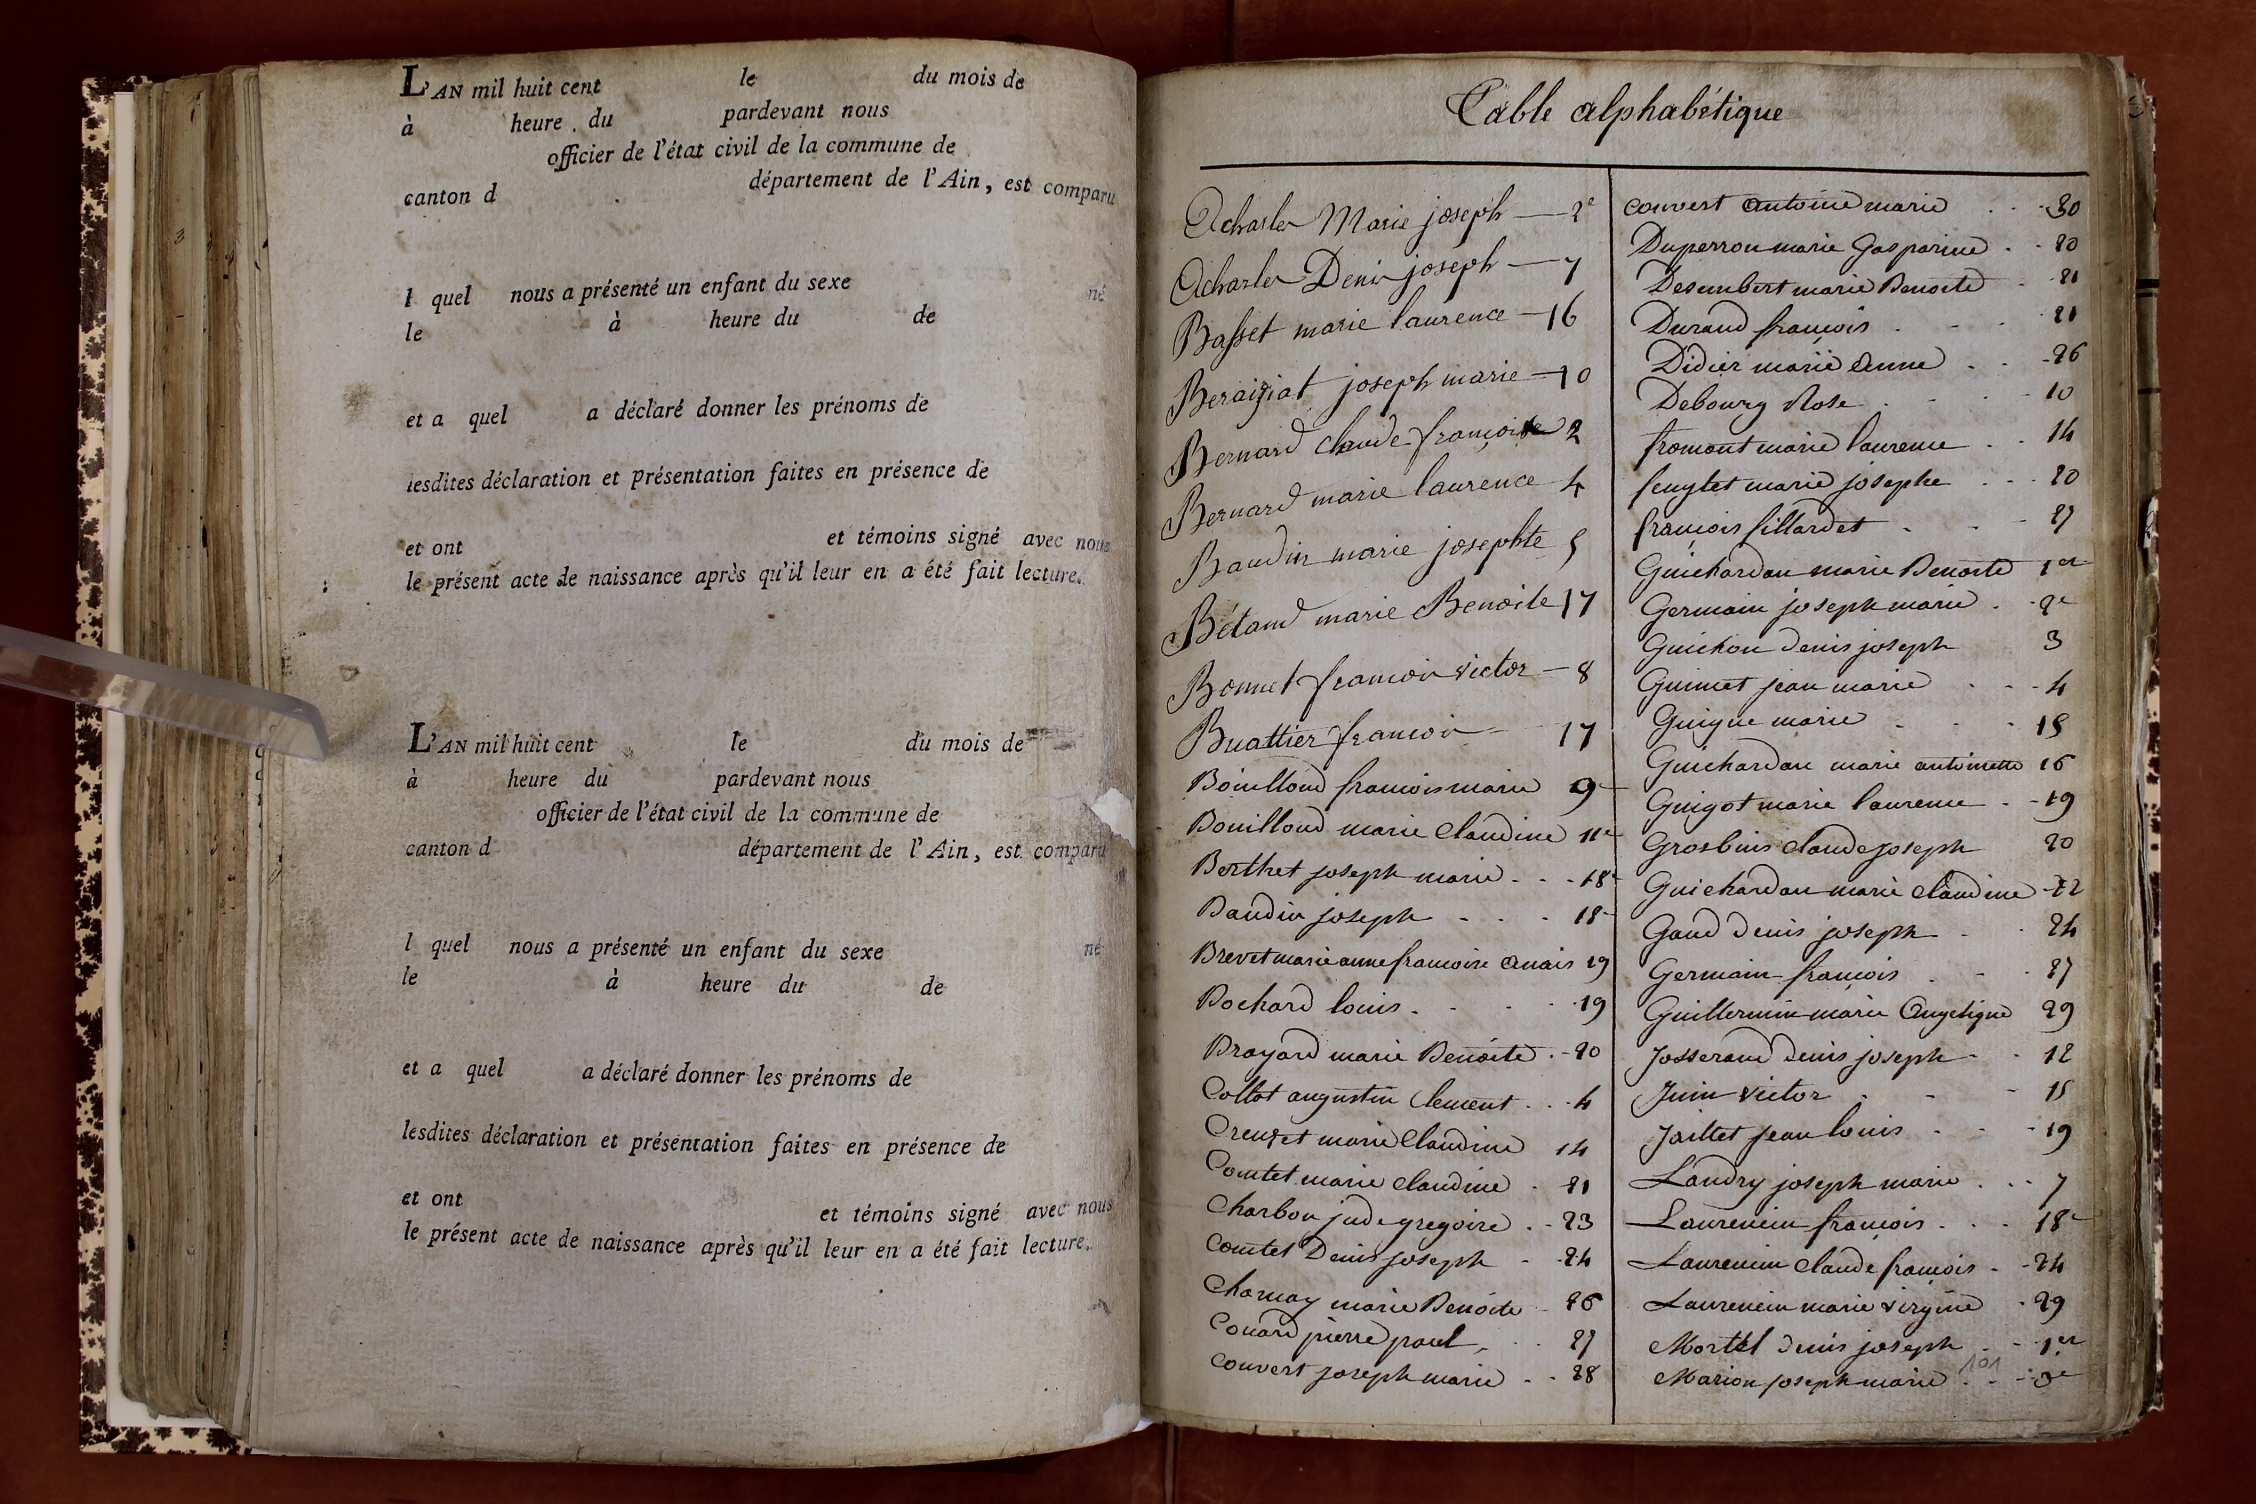 L'AN mil huit cent le du mois de
à heure du pardevant nous
officier de l'état civil de la commune de
canton d département de l'Ain, est comparu
l quel nous a présenté un enfant du sexe né
le à heure du de
et a quel a déclaré donner les prénoms de
lesdites déclaration et présentation faites en présence de
et ont et témoins signé avec nous
le présent acte de naissance après qu'il leur en a été fait lecture.
L'AN mil huit cent le du mois de
à heure du pardevant nous
officier de l'état civil de la commune de
canton d département de l'Ain, est comparu
l quel nous a présenté un enfant du sexe né
le à heure du de
et a quel a déclaré donner les prénoms de
lesdites déclaration et présentation faites en présence de
et ont et témoins signé avec nous
le présent acte de naissance après qu'il leur en a été fait lecture.
Table alphabétique
Acharles Marie joseph — 2e
Acharles Denis joseph — 7
Basset marie laurence — 16
Beraiziat joseph marie — 10
Bernard claude françoise 2
Bernard marie laurence 4
Baudin marie josephte 5
Bétand marie Benoite 17
Bonnet francois victor — 8
Buattier francois - 17
Bouilloud francois marie 9e
Bouilloud marie Claudine 11e
Berthet joseph marie . . - 18e
Baudin joseph - - . - 18e
Brevet marie anne francoise anais 19
Bochard louis . - - - 19
Brayard marie Benoite . - 20
Collot augustin Clement . . - 4
Creuzet marie Claudine 14
Comtet marie claudine . 21
Charbon jude gregoire . - 23
Comtet Denis joseph - - 24
Charnay marie Benoite - 26
Couard pierre paul - . 27
Couvert joseph marie - - 28
Couvert antoine marie . . - 30
Duperron marie Gasparine . - 20
Desembert marie Benoite . 21
Durand françois . - - - 21
Didier marie anne . . - 26
Debourg Rose . - - - 10
fromont marie laurence . . 14
feuylet marie josephe . - - 20
françois fillardet . - - 27
Guichardan marie Benoite 1er
Germain joseph marie . - 2e
Guichon denis joseph 3
Guimet jean marie . - - 4
Guigue marie - . - 15
Guichardan marie antoinette 16
Guigot marie laurence . - 19
Grosbuis claude joseph 20
Guichardan marie Claudine - 22
Gaud denis joseph - . 24
Germain françois . - . 27
Guillermin marie Angelique 29
Josserand denis joseph - . 12
Juin victor . - - 15
Jaillet jean louis - . - 19
Landry joseph marie . . - 7
Laurencin françois . - . 18e
Laurencin claude françois . - 24
Laurencin marie virginie . 29
Mortel denis joseph . - 1er
Marion joseph marie . - - 3e
101